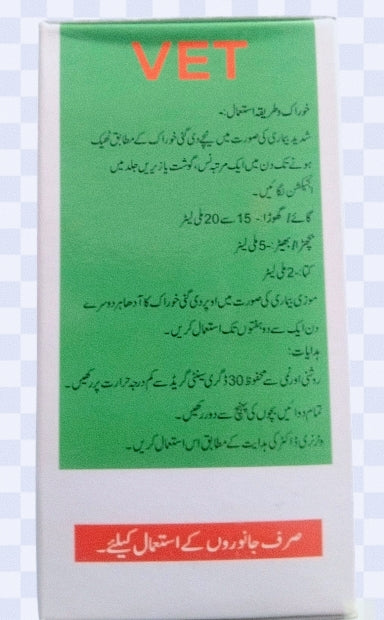 VET
خوراک و طریقہ استعمال:-
شدید بیماری کی صورت میں نیچے دی گئی خوراک کے مطابق ٹھیک
ہونے تک دن میں ایک مرتبہ نس، گوشت یا زیریں جلد میں
انجیکشن لگائیں۔
گائے/ گھوڑا:- 15 سے 20 ملی لیٹر
بچھڑا/ بھیڑ:- 5 ملی لیٹر
کتا:- 2 ملی لیٹر
موزی بیماری کی صورت میں اوپر دی گئی خوراک کا آدھا ہر دوسرے
دن ایک سے دو ہفتوں تک استعمال کریں۔
ہدایات:
روشنی اور نمی سے محفوظ 30 ڈگری سینٹی گریڈ سے کم درجہ حرارت پر رکھیں۔
تمام دوائیں بچوں کی پہنچ سے دور رکھیں۔
وٹرنری ڈاکٹر کی ہدایت کے مطابق اس استعمال کریں۔
صرف جانوروں کے استعمال کیلئے۔